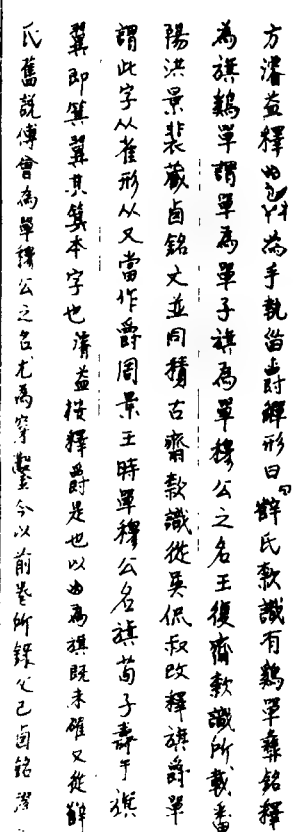 方濬益釋 為手執 爵觶形曰薛氏款識有鷄單彝銘釋
為旗鷄單謂單為單子旗為單穆公之名王復齋款識所載番
陽洪景裴藏卣銘文並同積古齋款識從吳侃叔改釋旗爵單
謂此字从雀形从又當作爵周景王時單穆公名旗荀子壽于旗
翼即箕翼其箕本字也濬益按釋爵是也以 為旗既未確又從薛
氏舊說傅會為單穆公之名尤為穿鑿今以前卷所錄父己卣銘